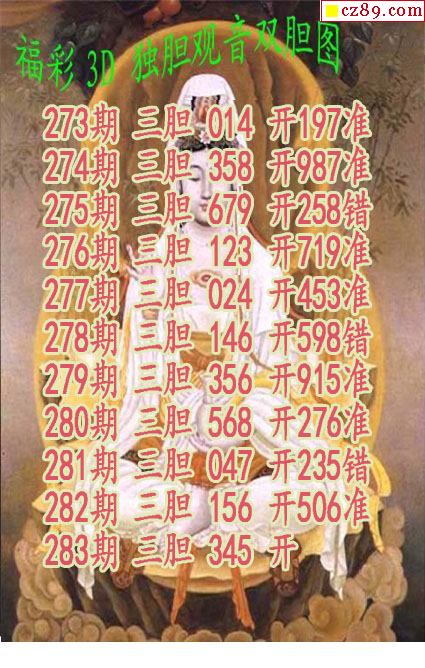 cz89.com
福彩 3D 独胆观音双胆图
273期 三胆 014 开197准
274期 三胆 358 开987准
275期 三胆 679 开258错
276期 三胆 123 开719准
277期 三胆 024 开453准
278期 三胆 146 开598错
279期 三胆 356 开915准
280期 三胆 568 开276准
281期 三胆 047 开235错
282期 三胆 156 开506准
283期 三胆 345 开